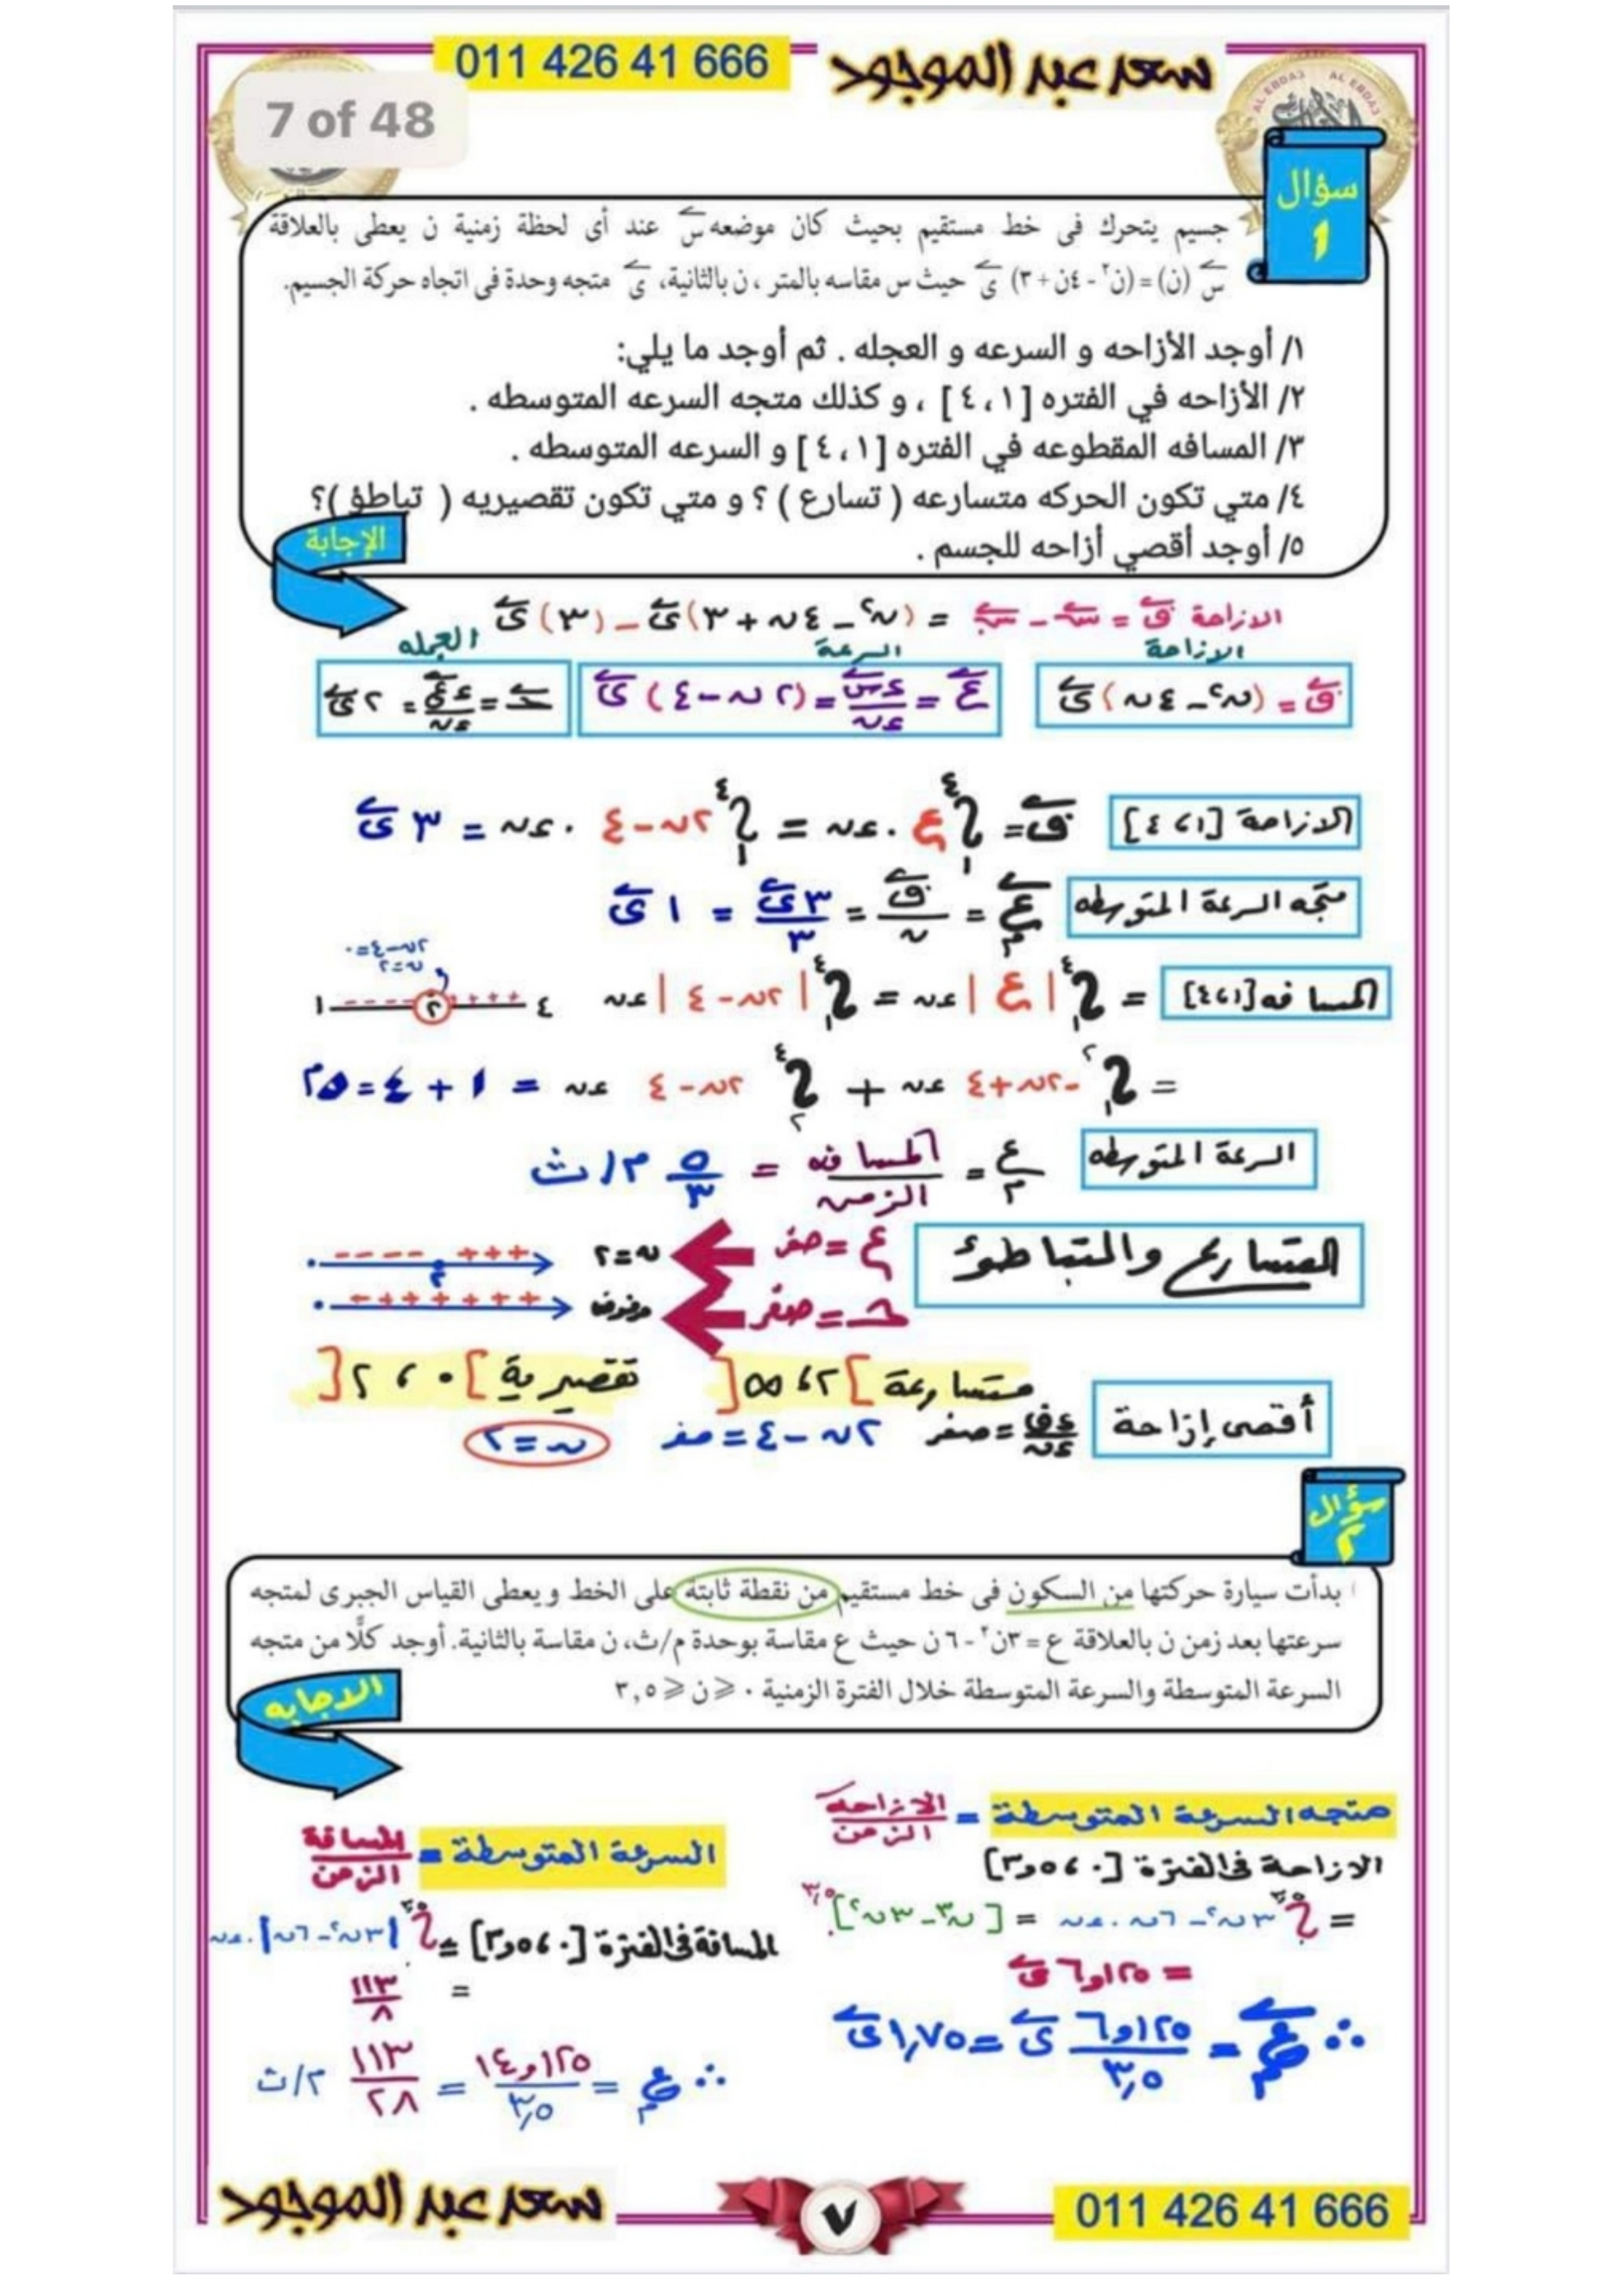 011 426 41 666
سعد عبد الموجود
7 of 48
AL EBDA3 AL EBDA3
سؤال
١
جسيم يتحرك فى خط مستقيم بحيث كان موضعه س عند أى لحظة زمنية ن يعطى بالعلاقة
س (ن) = (ن٢ - ٤ن + ٣) ى حيث س مقاسه بالمتر ، ن بالثانية، ى متجه وحدة فى اتجاه حركة الجسيم.
١/ أوجد الأزاحه و السرعه و العجله . ثم أوجد ما يلي:
٢/ الأزاحه في الفتره [١ ، ٤] ، و كذلك متجه السرعه المتوسطه .
٣/ المسافه المقطوعه في الفتره [١ ، ٤] و السرعه المتوسطه .
٤/ متي تكون الحركه متسارعه ( تسارع ) ؟ و متي تكون تقصيريه ( تباطؤ )؟
٥/ أوجد أقصي أزاحه للجسم .
الإجابة
الازاحة ف = س - س. = (ن٢ - ٤ن + ٣) ى - (٣) ى
الازاحة السرعة العجله
ف = (ن٢ - ٤ن) ى ع = ءس/ءن = (٢ن - ٤) ى حـ = ءع/ءن = ٢ ى
الازاحة [١، ٤] ف = ∫١٤ ع . ءن = ∫١٤ ٢ن - ٤ . ءن = ٣ ى
متجه السرعة المتوسطه عم = ف/ن = ٣ى/٣ = ١ ى
٢ن - ٤ = ٠
ن = ٢
المسافه [١، ٤] = ∫١٤ |ع| ءن = ∫١٤ |٢ن - ٤| ءن ١ - - - - ٢ + + + + ٤
= ∫١٢ -٢ن + ٤ ءن + ∫٢٤ ٢ن - ٤ ءن = ١ + ٤ = ٥م
السرعة المتوسطه عم = المسافه/الزمن = ٥/٣ م/ث
التسارع والتباطؤ ع = صفر ن = ٢ - - - - ٢ + + +
حـ = صفر مرفوض + + + + + +
متسارعة ]٢، ∞[ تقصيرية ]٠، ٢[
أقصى إزاحة ءف/ءن = صفر ٢ن - ٤ = صفر ن = ٢
سؤال
٢
بدأت سيارة حركتها من السكون فى خط مستقيم من نقطة ثابتة على الخط ويعطى القياس الجبرى لمتجه
سرعتها بعد زمن ن بالعلاقة ع = ٣ن٢ - ٦ن حيث ع مقاسة بوحدة م/ث، ن مقاسة بالثانية. أوجد كلًّا من متجه
السرعة المتوسطة والسرعة المتوسطة خلال الفترة الزمنية ٠ ⩽ ن ⩽ ٣,٥
الاجابه
متجه السرعة المتوسطة = الازاحه/الزمن
الازاحة فى الفترة [٠، ٣,٥]
= ∫٠٣,٥ ٣ن٢ - ٦ن . ءن = [ن٣ - ٣ن٢]٠٣,٥
= ٦,١٢٥ ى
∴ عم = ٦,١٢٥/٣,٥ ى = ١,٧٥ ى
السرعة المتوسطة = المسافة/الزمن
المسافة فى الفترة [٠، ٣,٥] = ∫٠٣,٥ |٣ن٢ - ٦ن| . ءن
= ١١٣/٨
∴ عم = ١٤,١٢٥/٣,٥ = ١١٣/٢٨ م/ث
سعد عبد الموجود
٧
011 426 41 666